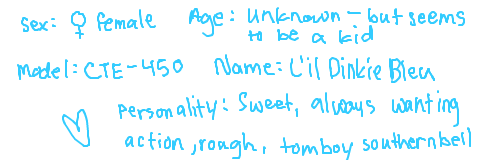 Sex: ♀ female Age: Unknown - but seems
to be a kid
Model: CTE-450 Name: L'il Dinkie Bleu
Personality: Sweet, always wanting
action, rough, tomboy southernbell